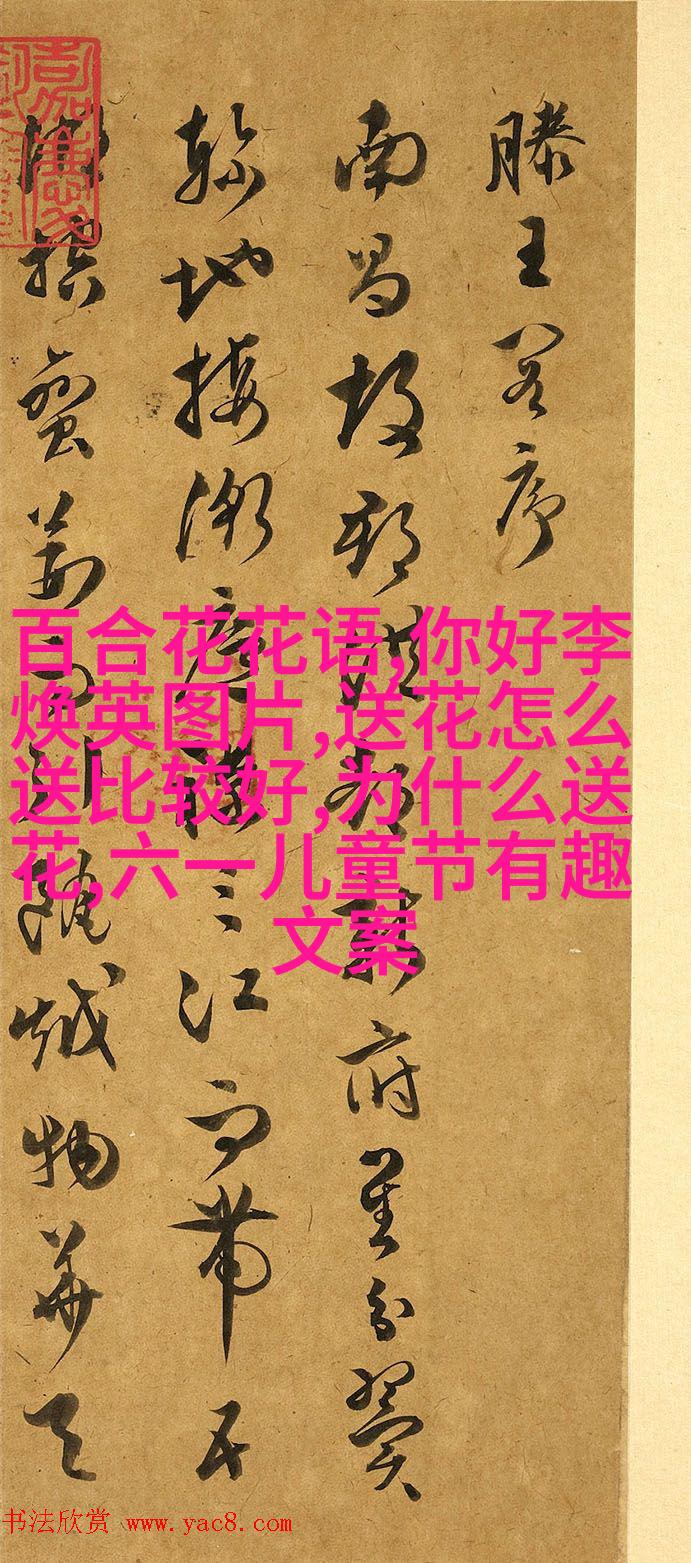 滕王閣序
南昌故郡洪都新府星分翼
軫地接衡廬襟三江而帶五
湖控蠻荊而引甌越物華天
百合花花语,你好李
焕英图片,送花怎么
送比较好,为什么送
花,六一儿童节有趣
文案
书法欣赏 www.yac8.com